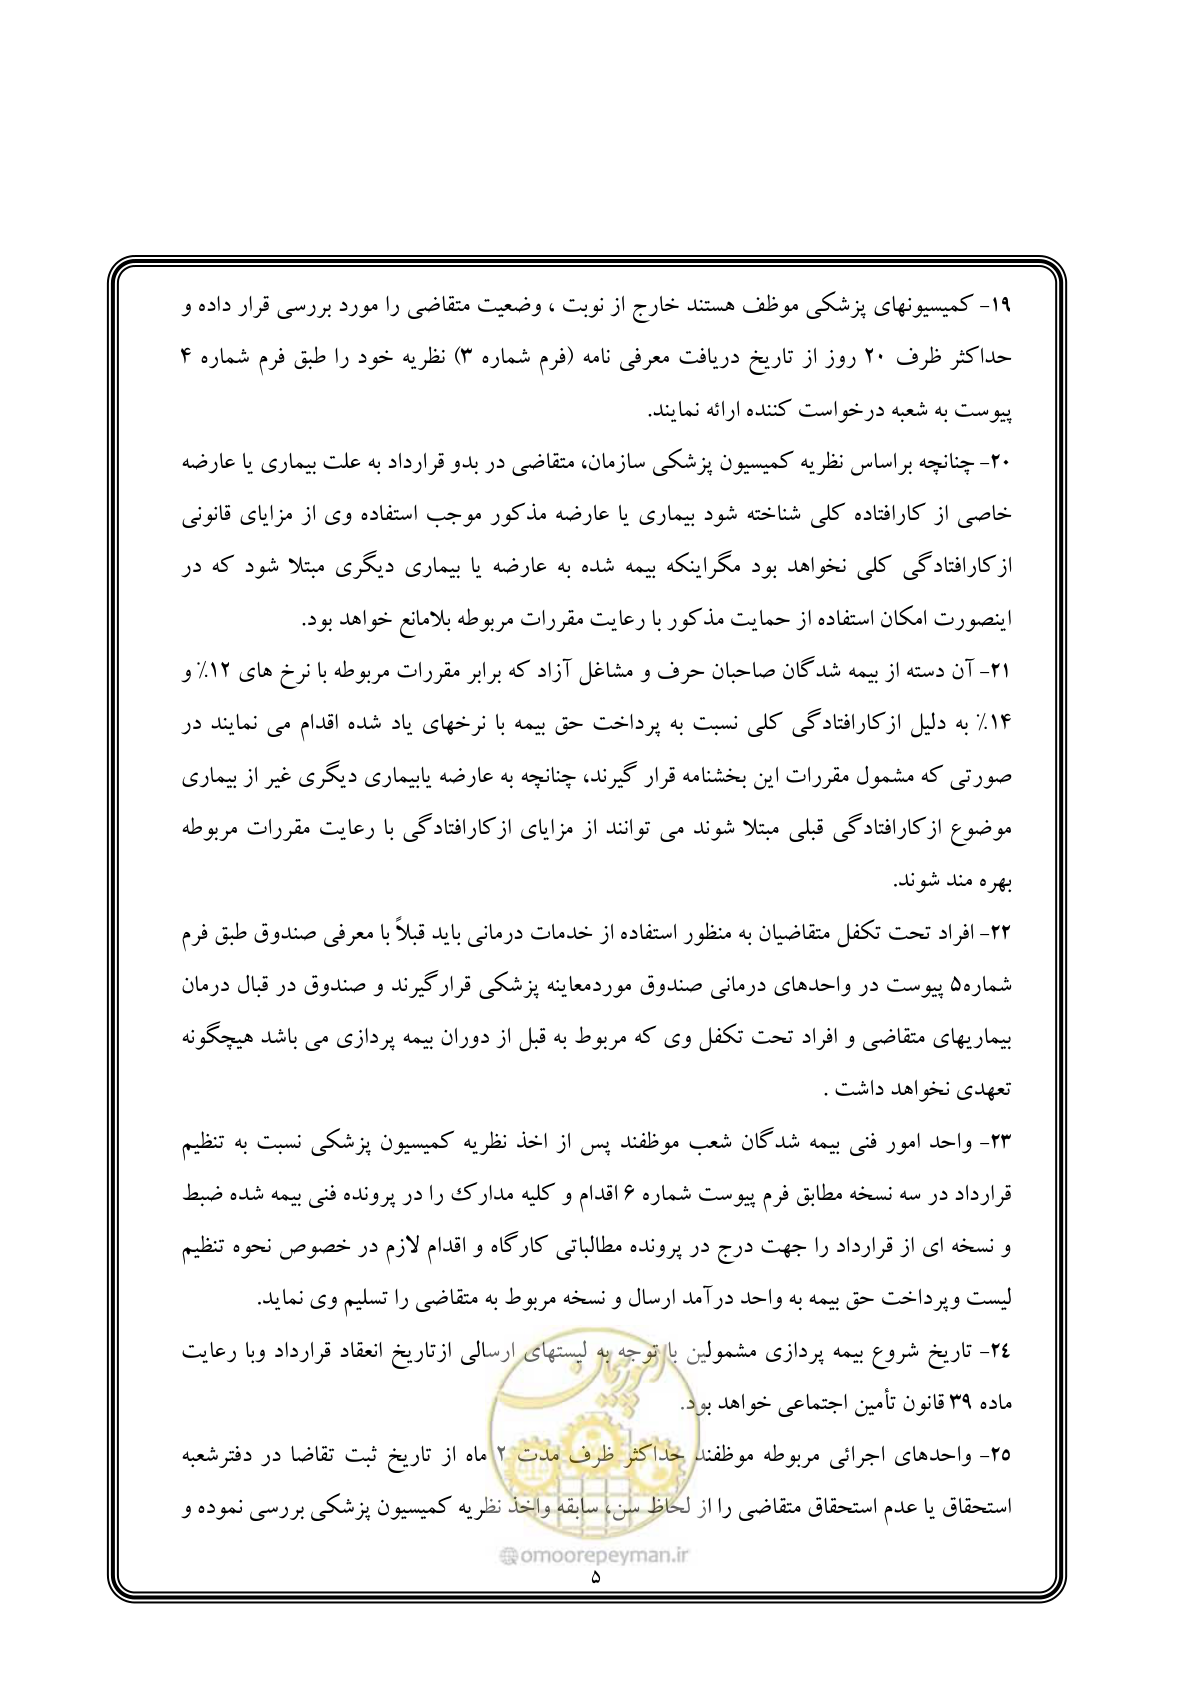 ۱۹- کمیسیونهای پزشکی موظف هستند خارج از نوبت ، وضعیت متقاضی را مورد بررسی قرار داده و
حداکثر ظرف ۲۰ روز از تاریخ دریافت معرفی نامه (فرم شماره ۳) نظریه خود را طبق فرم شماره ۴
پیوست به شعبه درخواست کننده ارائه نمایند.
۲۰- چنانچه براساس نظریه کمیسیون پزشکی سازمان، متقاضی در بدو قرارداد به علت بیماری یا عارضه
خاصی از کارافتاده کلی شناخته شود بیماری یا عارضه مذکور موجب استفاده وی از مزایای قانونی
ازکارافتادگی کلی نخواهد بود مگراینکه بیمه شده به عارضه یا بیماری دیگری مبتلا شود که در
اینصورت امکان استفاده از حمایت مذکور با رعایت مقررات مربوطه بلامانع خواهد بود.
۲۱- آن دسته از بیمه شدگان صاحبان حرف و مشاغل آزاد که برابر مقررات مربوطه با نرخ های ۱۲٪ و
۱۴٪ به دلیل ازکارافتادگی کلی نسبت به پرداخت حق بیمه با نرخهای یاد شده اقدام می نمایند در
صورتی که مشمول مقررات این بخشنامه قرار گیرند، چنانچه به عارضه یابیماری دیگری غیر از بیماری
موضوع ازکارافتادگی قبلی مبتلا شوند می توانند از مزایای ازکارافتادگی با رعایت مقررات مربوطه
بهره مند شوند.
۲۲- افراد تحت تکفل متقاضیان به منظور استفاده از خدمات درمانی باید قبلاً با معرفی صندوق طبق فرم
شماره۵ پیوست در واحدهای درمانی صندوق موردمعاینه پزشکی قرارگیرند و صندوق در قبال درمان
بیماریهای متقاضی و افراد تحت تکفل وی که مربوط به قبل از دوران بیمه پردازی می باشد هیچگونه
تعهدی نخواهد داشت .
۲۳- واحد امور فنی بیمه شدگان شعب موظفند پس از اخذ نظریه کمیسیون پزشکی نسبت به تنظیم
قرارداد در سه نسخه مطابق فرم پیوست شماره ۶ اقدام و کلیه مدارك را در پرونده فنی بیمه شده ضبط
و نسخه ای از قرارداد را جهت درج در پرونده مطالباتی کارگاه و اقدام لازم در خصوص نحوه تنظیم
لیست وپرداخت حق بیمه به واحد درآمد ارسال و نسخه مربوط به متقاضی را تسلیم وی نماید.
۲٤- تاریخ شروع بیمه پردازی مشمولین با توجه به لیستهای ارسالی ازتاریخ انعقاد قرارداد وبا رعایت
ماده ۳۹ قانون تأمین اجتماعی خواهد بود.
۲۵- واحدهای اجرائی مربوطه موظفند حداکثر ظرف مدت ۲ ماه از تاریخ ثبت تقاضا در دفترشعبه
استحقاق یا عدم استحقاق متقاضی را از لحاظ سن، سابقه واخذ نظریه کمیسیون پزشکی بررسی نموده و
امورپیمان
@omoorepeyman.ir
۵